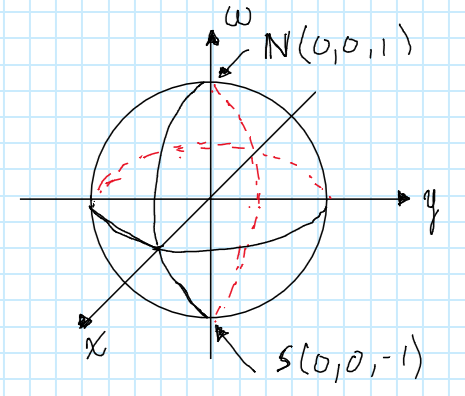 ω
N(0,0,1)
y
x
S(0,0,-1)